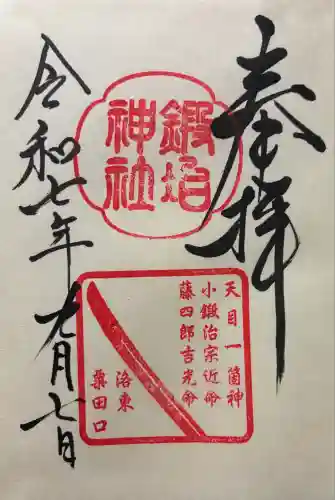 奉拝
鍛冶
神社
天目一箇神
小鍛治宗近命
藤四郎吉光命
洛東
粟田口
令和七年
九月七日